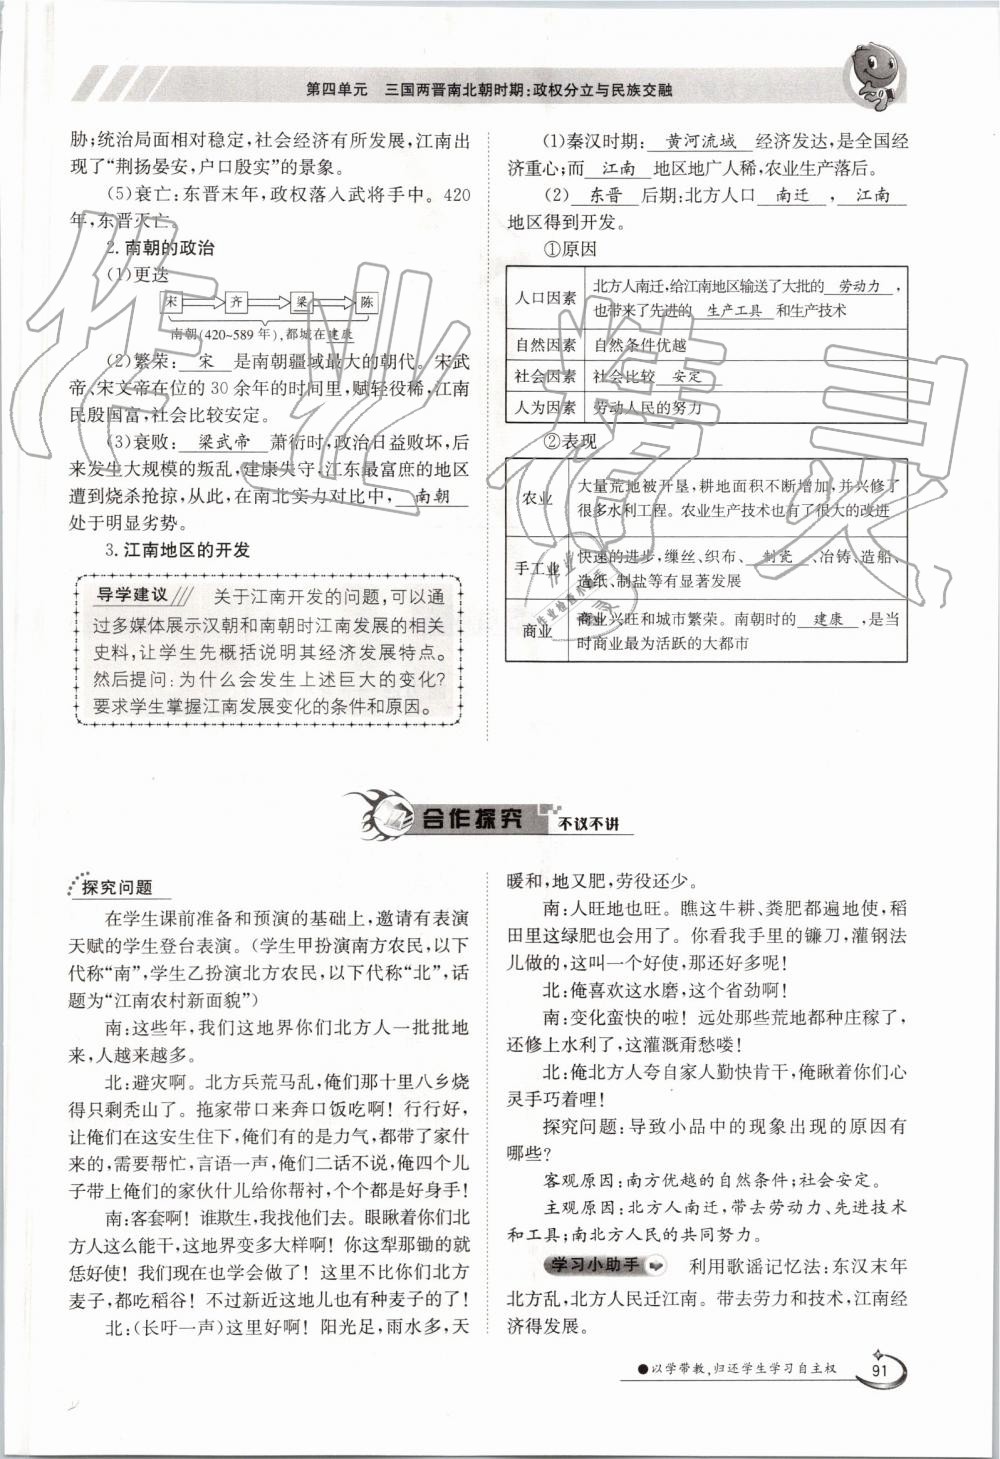 第四单元 三国两晋南北朝时期:政权分立与民族交融
胁;统治局面相对稳定,社会经济有所发展,江南出
现了“荆扬晏安,户口殷实”的景象。
(5)衰亡:东晋末年,政权落入武将手中。420
年,东晋灭亡。
2. 南朝的政治
(1)更迭
宋 齐 梁 陈
南朝(420~589年),都城在建康
(2)繁荣: 宋 是南朝疆域最大的朝代。宋武
帝、宋文帝在位的 30 余年的时间里,赋轻役稀,江南
民殷国富,社会比较安定。
(3)衰败: 梁武帝 萧衍时,政治日益败坏,后
来发生大规模的叛乱,建康失守,江东最富庶的地区
遭到烧杀抢掠,从此,在南北实力对比中, 南朝
处于明显劣势。
3. 江南地区的开发
导学建议 关于江南开发的问题,可以通
过多媒体展示汉朝和南朝时江南发展的相关
史料,让学生先概括说明其经济发展特点。
然后提问:为什么会发生上述巨大的变化?
要求学生掌握江南发展变化的条件和原因。
(1)秦汉时期: 黄河流域 经济发达,是全国经
济重心;而 江南 地区地广人稀,农业生产落后。
(2) 东晋 后期:北方人口 南迁 , 江南
地区得到开发。
①原因
人口因素 北方人南迁,给江南地区输送了大批的 劳动力 ,
也带来了先进的 生产工具 和生产技术
自然因素 自然条件优越
社会因素 社会比较 安定
人为因素 劳动人民的努力
②表现
农业 大量荒地被开垦,耕地面积不断增加,并兴修了
很多水利工程。农业生产技术也有了很大的改进
手工业 快速的进步,缫丝、织布、 制瓷 、冶铸、造船、
造纸、制盐等有显著发展
商业 商业兴旺和城市繁荣。南朝时的 建康 ,是当
时商业最为活跃的大都市
合作探究 不议不讲
探究问题
在学生课前准备和预演的基础上,邀请有表演
天赋的学生登台表演。(学生甲扮演南方农民,以下
代称“南”,学生乙扮演北方农民,以下代称“北”,话
题为“江南农村新面貌”)
南:这些年,我们这地界你们北方人一批批地
来,人越来越多。
北:避灾啊。北方兵荒马乱,俺们那十里八乡烧
得只剩秃山了。拖家带口来奔口饭吃啊! 行行好,
让俺们在这安生住下,俺们有的是力气,都带了家什
来的,需要帮忙,言语一声,俺们二话不说,俺四个儿
子带上俺们的家伙什儿给你帮衬,个个都是好身手!
南:客套啊! 谁欺生,我找他们去。眼瞅着你们北
方人这么能干,这地界变多大样啊! 你这犁那锄的就
恁好使! 我们现在也学会做了! 这里不比你们北方
麦子,都吃稻谷! 不过新近这地儿也有种麦子的了!
北:(长吁一声)这里好啊! 阳光足,雨水多,天
暖和,地又肥,劳役还少。
南:人旺地也旺。瞧这牛耕、粪肥都遍地使,稻
田里这绿肥也会用了。你看我手里的镰刀,灌钢法
儿做的,这叫一个好使,那还好多呢!
北:俺喜欢这水磨,这个省劲啊!
南:变化蛮快的啦! 远处那些荒地都种庄稼了,
还修上水利了,这灌溉甭愁喽!
北:俺北方人夸自家人勤快肯干,俺瞅着你们心
灵手巧着哩!
探究问题:导致小品中的现象出现的原因有
哪些?
客观原因:南方优越的自然条件;社会安定。
主观原因:北方人南迁,带去劳动力、先进技术
和工具;南北方人民的共同努力。
学习小助手 利用歌谣记忆法:东汉末年
北方乱,北方人民迁江南。带去劳力和技术,江南经
济得发展。
●以学带教,归还学生学习自主权 91
作业精灵